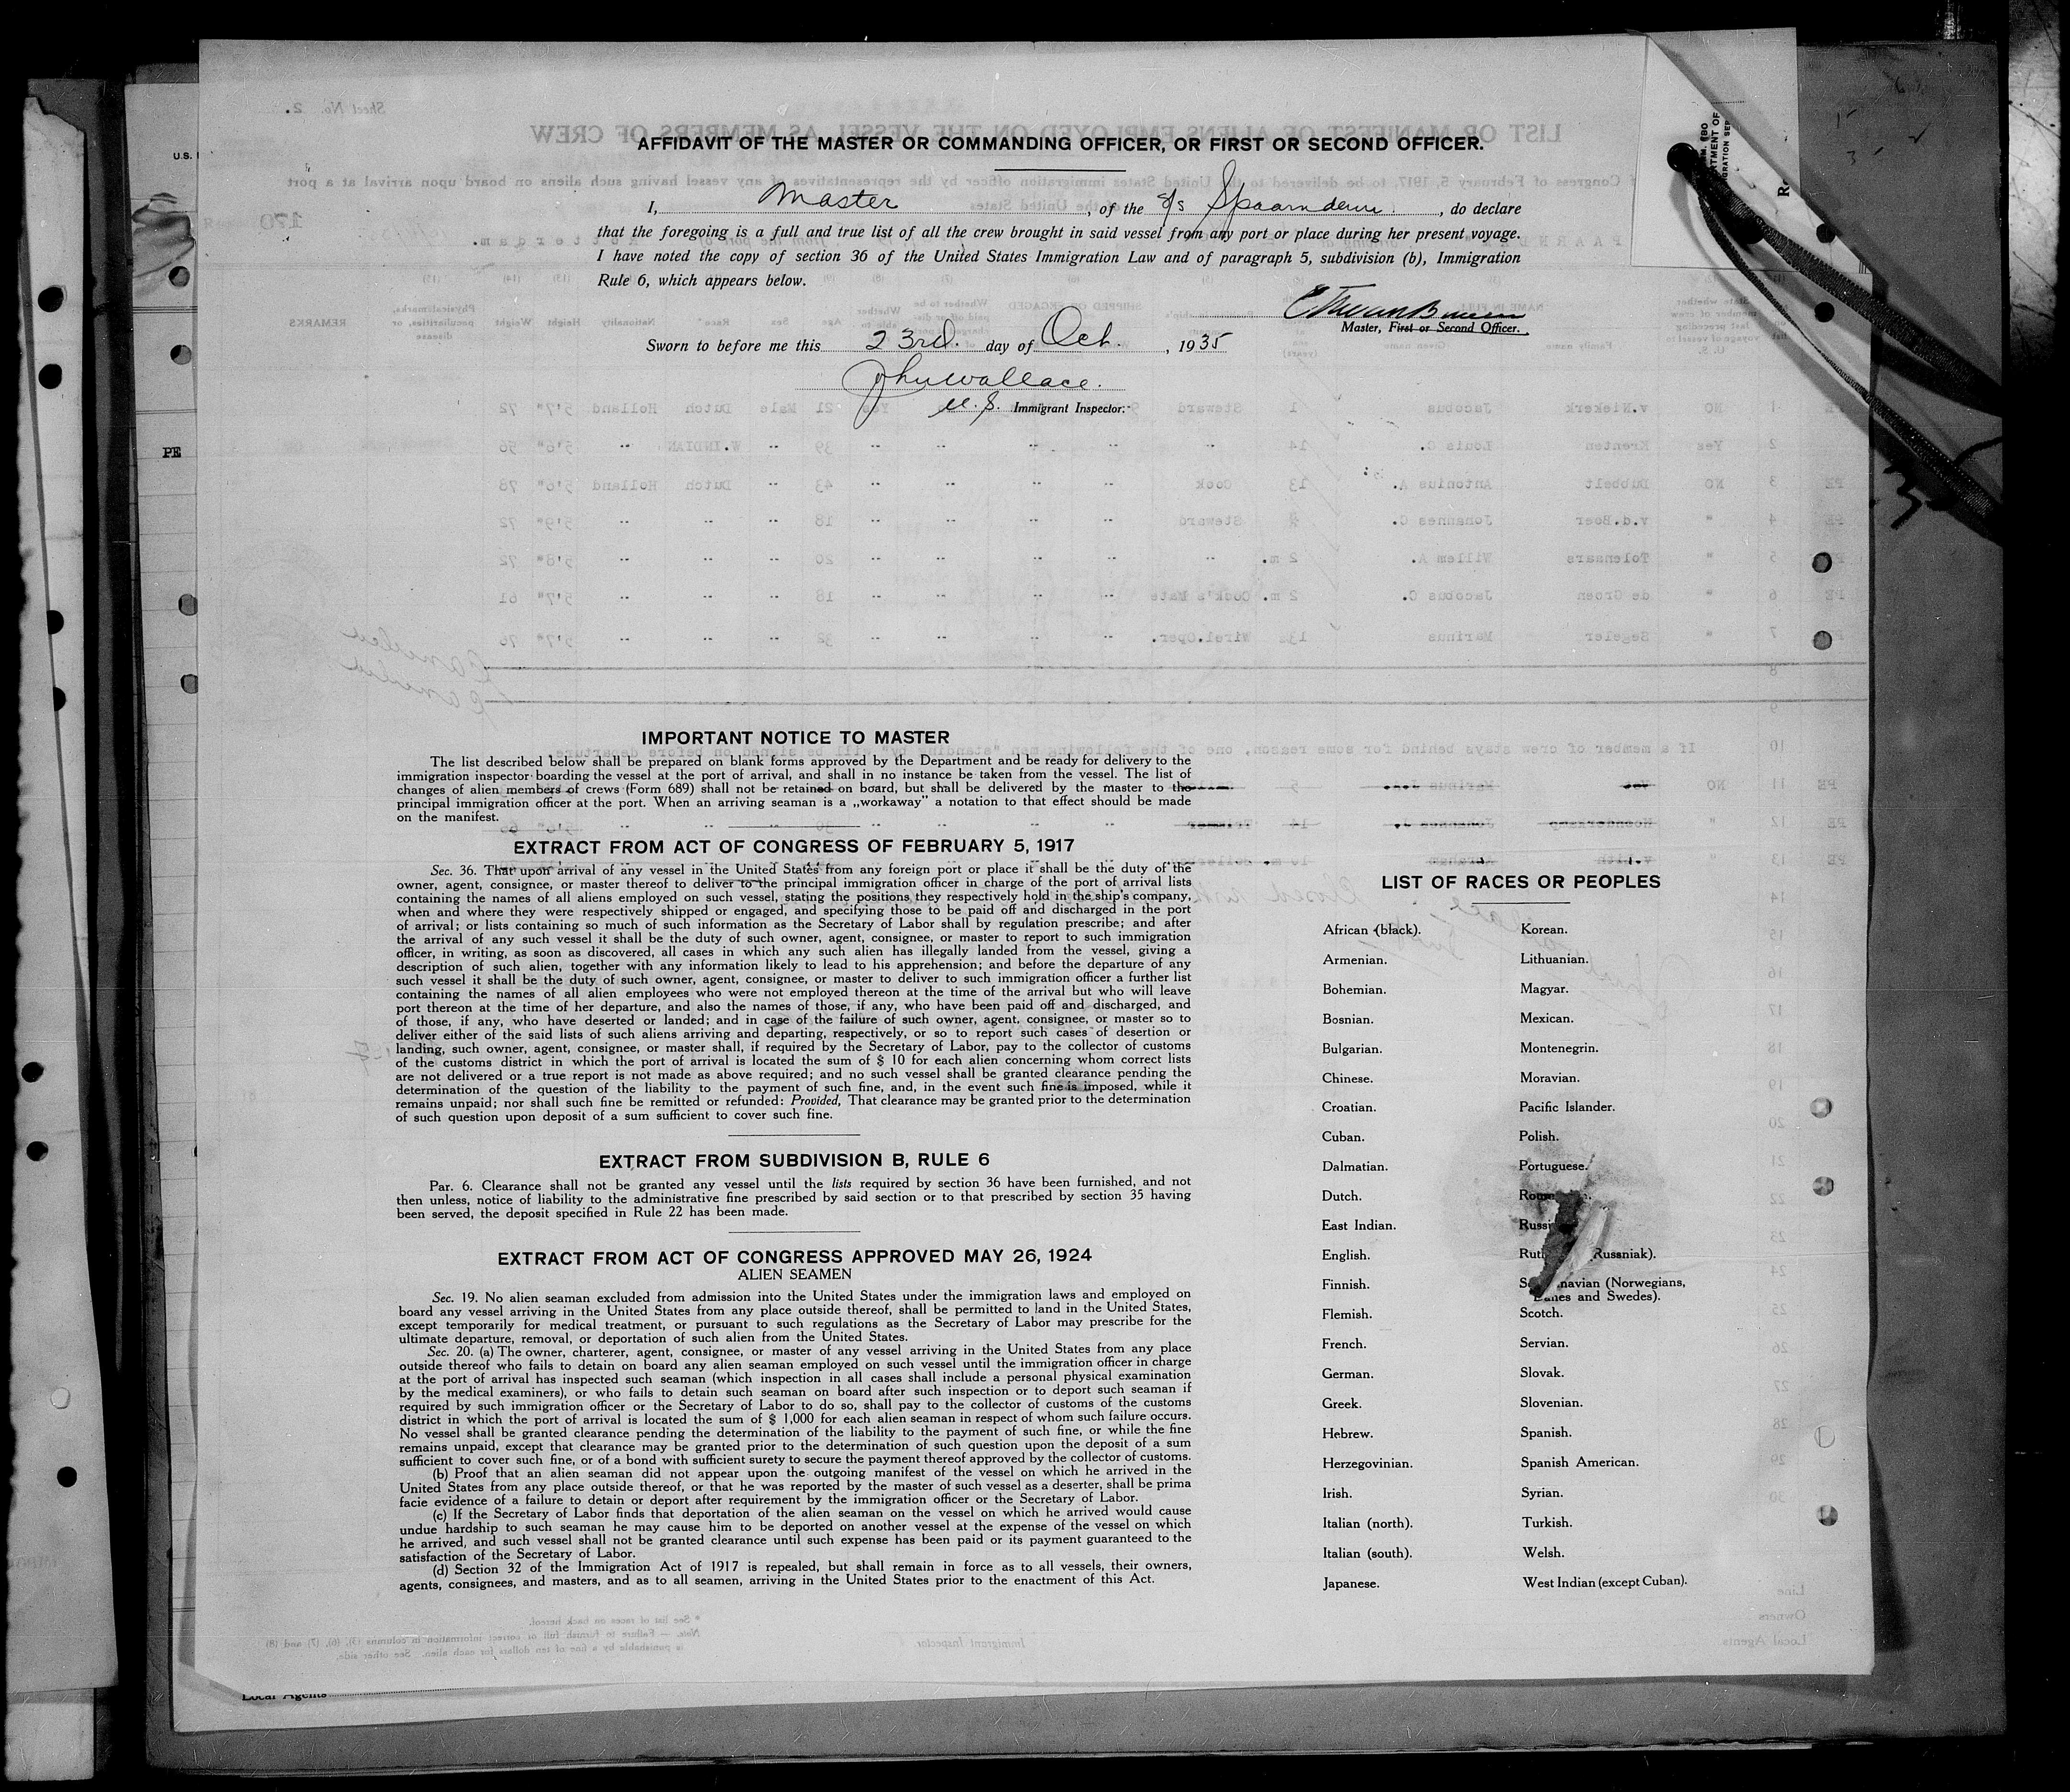 AFFIDAVIT OF THE MASTER OR COMMANDING OFFICER, OR FIRST OR SECOND OFFICER.
I, Master, of the s/s Spaarndam, do declare
that the foregoing is a full and true list of all the crew brought in said vessel from any port or place during her present voyage.
I have noted the copy of section 36 of the United States Immigration Law and of paragraph 5, subdivision (b), Immigration
Rule 6, which appears below.
Master, First or Second Officer.
Sworn to before me this 23rd. day of Oct., 1935
John Wallace.
U.S. Immigrant Inspector.
IMPORTANT NOTICE TO MASTER
The list described below shall be prepared on blank forms approved by the Department and be ready for delivery to the
immigration inspector boarding the vessel at the port of arrival, and shall in no instance be taken from the vessel. The list of
changes of alien members of crews (Form 689) shall not be retained on board, but shall be delivered by the master to the
principal immigration officer at the port. When an arriving seaman is a „workaway” a notation to that effect should be made
on the manifest.
EXTRACT FROM ACT OF CONGRESS OF FEBRUARY 5, 1917
Sec. 36. That upon arrival of any vessel in the United States from any foreign port or place it shall be the duty of the
owner, agent, consignee, or master thereof to deliver to the principal immigration officer in charge of the port of arrival lists
containing the names of all aliens employed on such vessel, stating the positions they respectively hold in the ship's company,
when and where they were respectively shipped or engaged, and specifying those to be paid off and discharged in the port
of arrival; or lists containing so much of such information as the Secretary of Labor shall by regulation prescribe; and after
the arrival of any such vessel it shall be the duty of such owner, agent, consignee, or master to report to such immigration
officer, in writing, as soon as discovered, all cases in which any such alien has illegally landed from the vessel, giving a
description of such alien, together with any information likely to lead to his apprehension; and before the departure of any
such vessel it shall be the duty of such owner, agent, consignee, or master to deliver to such immigration officer a further list
containing the names of all alien employees who were not employed thereon at the time of the arrival but who will leave
port thereon at the time of her departure, and also the names of those, if any, who have been paid off and discharged, and
of those, if any, who have deserted or landed; and in case of the failure of such owner, agent, consignee, or master so to
deliver either of the said lists of such aliens arriving and departing, respectively, or so to report such cases of desertion or
landing, such owner, agent, consignee, or master shall, if required by the Secretary of Labor, pay to the collector of customs
of the customs district in which the port of arrival is located the sum of $ 10 for each alien concerning whom correct lists
are not delivered or a true report is not made as above required; and no such vessel shall be granted clearance pending the
determination of the question of the liability to the payment of such fine, and, in the event such fine is imposed, while it
remains unpaid; nor shall such fine be remitted or refunded: Provided, That clearance may be granted prior to the determination
of such question upon deposit of a sum sufficient to cover such fine.
EXTRACT FROM SUBDIVISION B, RULE 6
Par. 6. Clearance shall not be granted any vessel until the lists required by section 36 have been furnished, and not
then unless, notice of liability to the administrative fine prescribed by said section or to that prescribed by section 35 having
been served, the deposit specified in Rule 22 has been made.
EXTRACT FROM ACT OF CONGRESS APPROVED MAY 26, 1924
ALIEN SEAMEN
Sec. 19. No alien seaman excluded from admission into the United States under the immigration laws and employed on
board any vessel arriving in the United States from any place outside thereof, shall be permitted to land in the United States,
except temporarily for medical treatment, or pursuant to such regulations as the Secretary of Labor may prescribe for the
ultimate departure, removal, or deportation of such alien from the United States.
Sec. 20. (a) The owner, charterer, agent, consignee, or master of any vessel arriving in the United States from any place
outside thereof who fails to detain on board any alien seaman employed on such vessel until the immigration officer in charge
at the port of arrival has inspected such seaman (which inspection in all cases shall include a personal physical examination
by the medical examiners), or who fails to detain such seaman on board after such inspection or to deport such seaman if
required by such immigration officer or the Secretary of Labor to do so, shall pay to the collector of customs of the customs
district in which the port of arrival is located the sum of $ 1,000 for each alien seaman in respect of whom such failure occurs.
No vessel shall be granted clearance pending the determination of the liability to the payment of such fine, or while the fine
remains unpaid, except that clearance may be granted prior to the determination of such question upon the deposit of a sum
sufficient to cover such fine, or of a bond with sufficient surety to secure the payment thereof approved by the collector of customs.
(b) Proof that an alien seaman did not appear upon the outgoing manifest of the vessel on which he arrived in the
United States from any place outside thereof, or that he was reported by the master of such vessel as a deserter, shall be prima
facie evidence of a failure to detain or deport after requirement by the immigration officer or the Secretary of Labor.
(c) If the Secretary of Labor finds that deportation of the alien seaman on the vessel on which he arrived would cause
undue hardship to such seaman he may cause him to be deported on another vessel at the expense of the vessel on which
he arrived, and such vessel shall not be granted clearance until such expense has been paid or its payment guaranteed to the
satisfaction of the Secretary of Labor.
(d) Section 32 of the Immigration Act of 1917 is repealed, but shall remain in force as to all vessels, their owners,
agents, consignees, and masters, and as to all seamen, arriving in the United States prior to the enactment of this Act.
LIST OF RACES OR PEOPLES
African (black).
Armenian.
Bohemian.
Bosnian.
Bulgarian.
Chinese.
Croatian.
Cuban.
Dalmatian.
Dutch.
East Indian.
English.
Finnish.
Flemish.
French.
German.
Greek.
Hebrew.
Herzegovinian.
Irish.
Italian (north).
Italian (south).
Japanese.
Korean.
Lithuanian.
Magyar.
Mexican.
Montenegrin.
Moravian.
Pacific Islander.
Polish.
Portuguese.
Russniak).
(Norwegians,
and Swedes).
Scotch.
Servian.
Slovak.
Slovenian.
Spanish.
Spanish American.
Syrian.
Turkish.
Welsh.
West Indian (except Cuban).
U.S.
PE
Local Agents